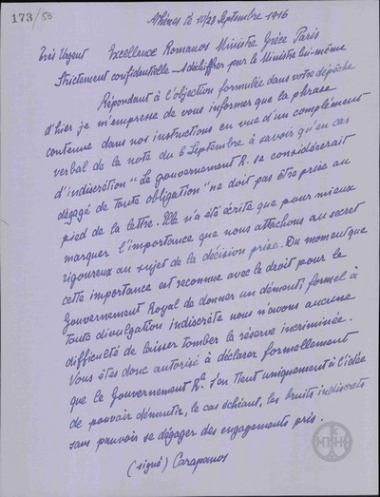 173/50
Athènes le 10/23 Septembre 1916
Très Urgent Excellence Romanos Ministre Grèce Paris
Strictement confidentielle _ A déchiffrer par le Ministre lui-même
Répondant à l'objection formulée dans votre dépêche
d'hier je m'empresse de vous informer que la phrase
contenue dans nos instructions en vue d'un complément
verbal de la note du 6 Septembre à savoir qu'en cas
d'indiscrétion "Le gouvernement R. se considérerait
dégagé de toute obligation" ne doit pas être prise au
pied de la lettre. Elle n'a été écrite que pour mieux
marquer l'importance que nous attachons au secret
rigoureux au sujet de la décision prise. Du moment que
cette importance est reconnue avec le droit pour le
Gouvernement Royal de donner un démenti formel à
toute divulgation indiscrète nous n'avons aucune
difficulté de laisser tomber la réserve incriminée.
Vous êtes donc autorisé à déclarer formellement
que le Gouvernement Rl. s'en tient uniquement à l'idée
de pouvoir démentir, le cas échéant, les bruits indiscrets
sans pouvoir se dégager des engagements pris.
(signé) Carapanos